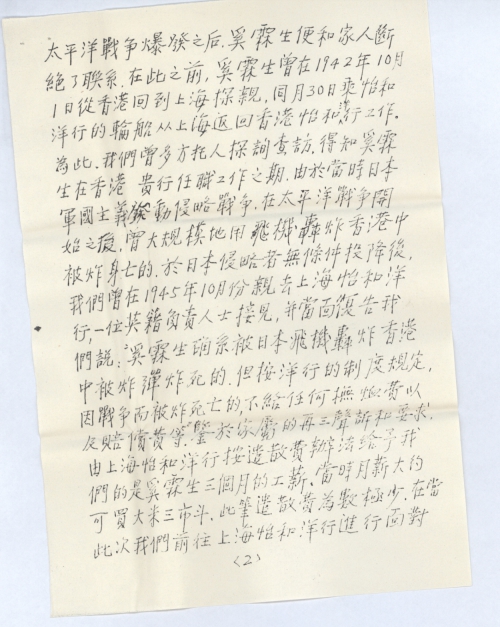 太平洋戰争爆發之后，奚霖生便和家人斷
絕了聯系，在此之前，奚霖生曾在1942年10月
1日從香港回到上海探親，同月30日乘怡和
洋行的輪船从上海返回香港怡和洋行工作。
為此，我們曾多方托人探詢查訪，得知奚霖
生在香港 貴行任職工作之期，由於當時日本
軍國主義發動侵略戰争，在太平洋戰争開
始之後，曾大規模地用飛機轟炸香港中
被炸身亡的，於日本侵略者無條件投降後，
我們曾在1945年10月份親去上海怡和洋
行，一位英籍負責人士接見，并當面復告我
們說：奚霖生確系被日本飛機轟炸香港
中被炸彈炸死的，但按洋行的制度規定，
因戰争而被炸死亡的不給任何撫恤費以
及賠償費等，鑒於家屬的再三聲訴和要求，
由上海怡和洋行按遣散費辦法給予我
們的是奚霖生三個月的工薪，當時月薪大約
可買大米三市斗，此筆遣散費為數極少，在當
此次我們前往上海怡和洋行進行面對
<2>